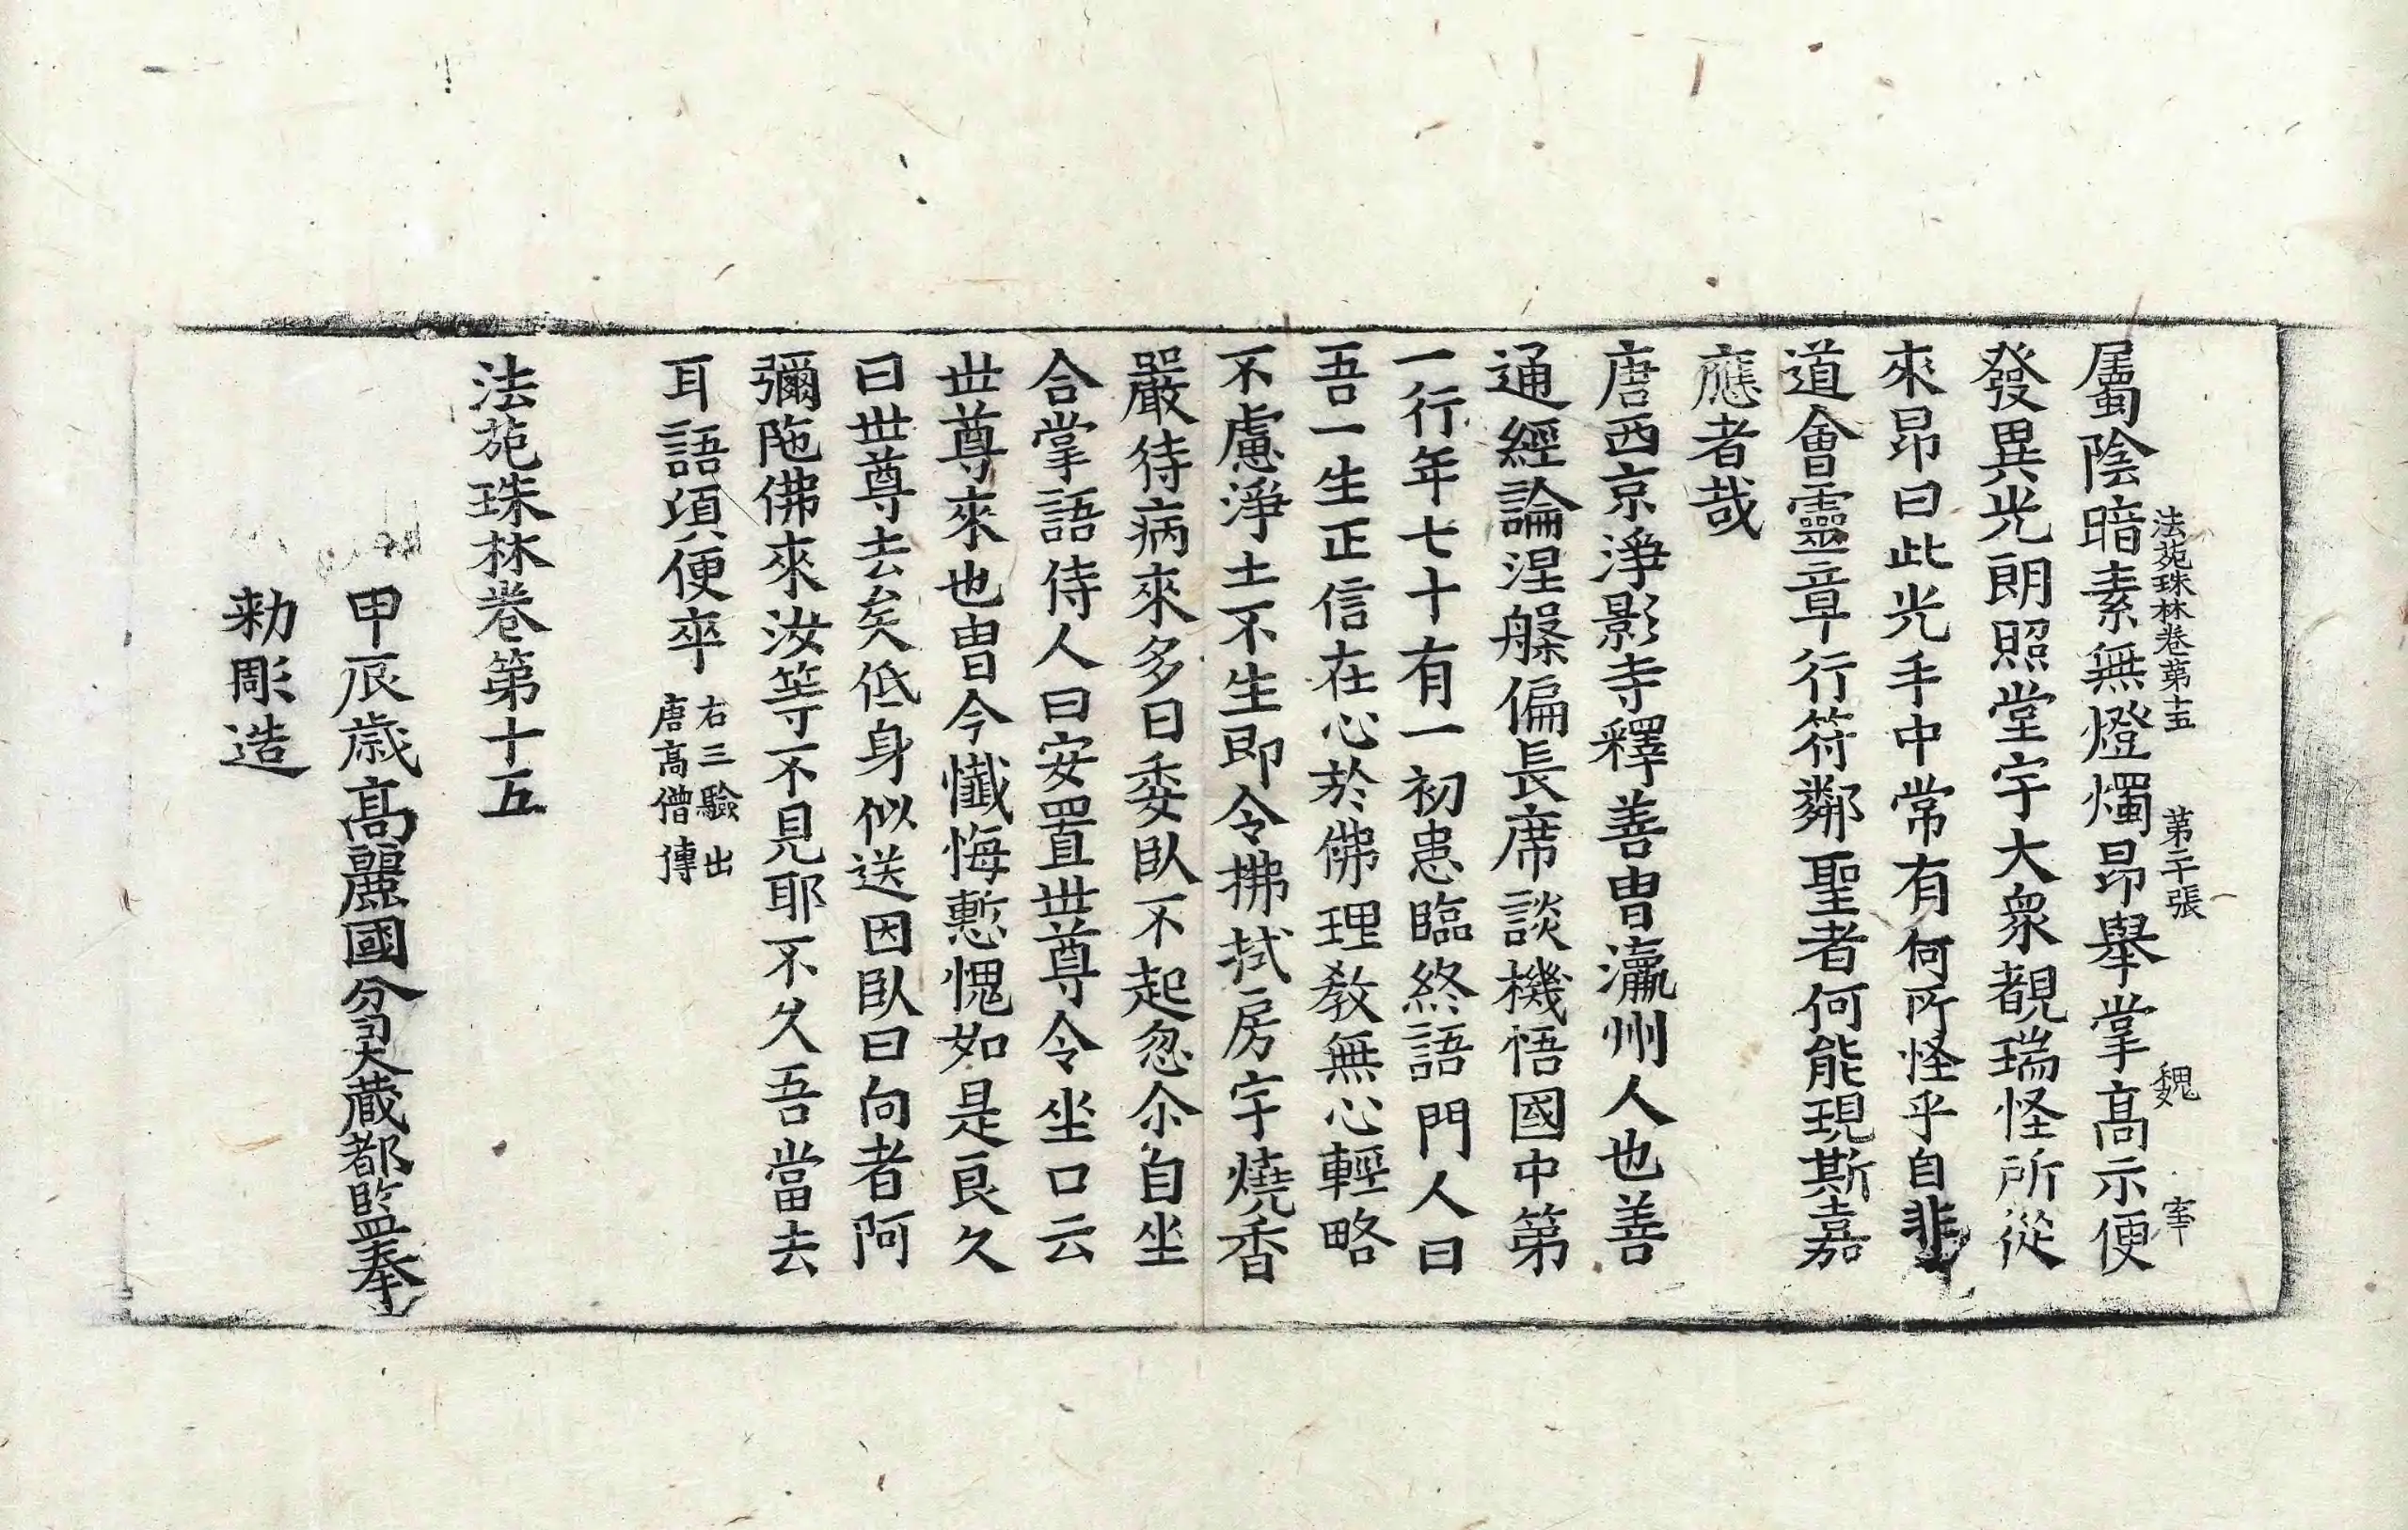 法苑珠林卷第十五 第二十張 魏 宰
屬陰暗素無燈燭昂舉掌高示便
發異光朗照堂宇大衆覩瑞怪所從
來昂曰此光手中常有何所怪乎自非
道會靈章行符鄰聖者何能現斯嘉
應者哉
唐西京淨影寺釋善曺瀛州人也善
通經論涅槃偏長席談機悟國中第
一行年七十有一初患臨終語門人曰
吾一生正信在心於佛理教無心輕略
不慮淨土不生即令拂拭房宇燒香
嚴待病來多日委臥不起忽尒自坐
合掌語侍人曰安置世尊令坐口云
世尊來也曺今懺悔慙愧如是良久
曰世尊去矣低身似送因臥曰向者阿
彌陁佛來汝等不見耶不久吾當去
耳語頃便卒 右三驗出
唐高僧傳
法苑珠林卷第十五
甲辰歲高麗國分司大藏都監奉
勅彫造